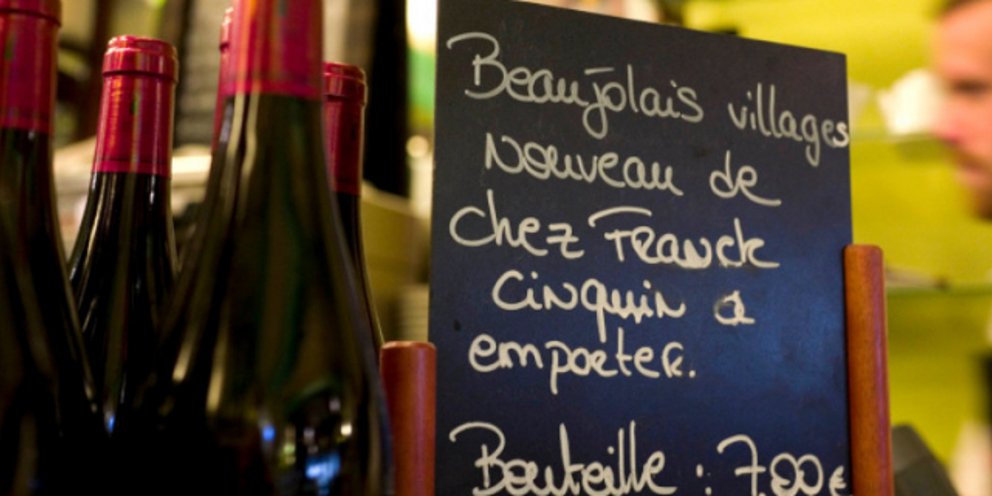 Beaujolais villages
Nouveau de
chez Franck
Cinquin a
emporter.
Bouteille : 7.00€